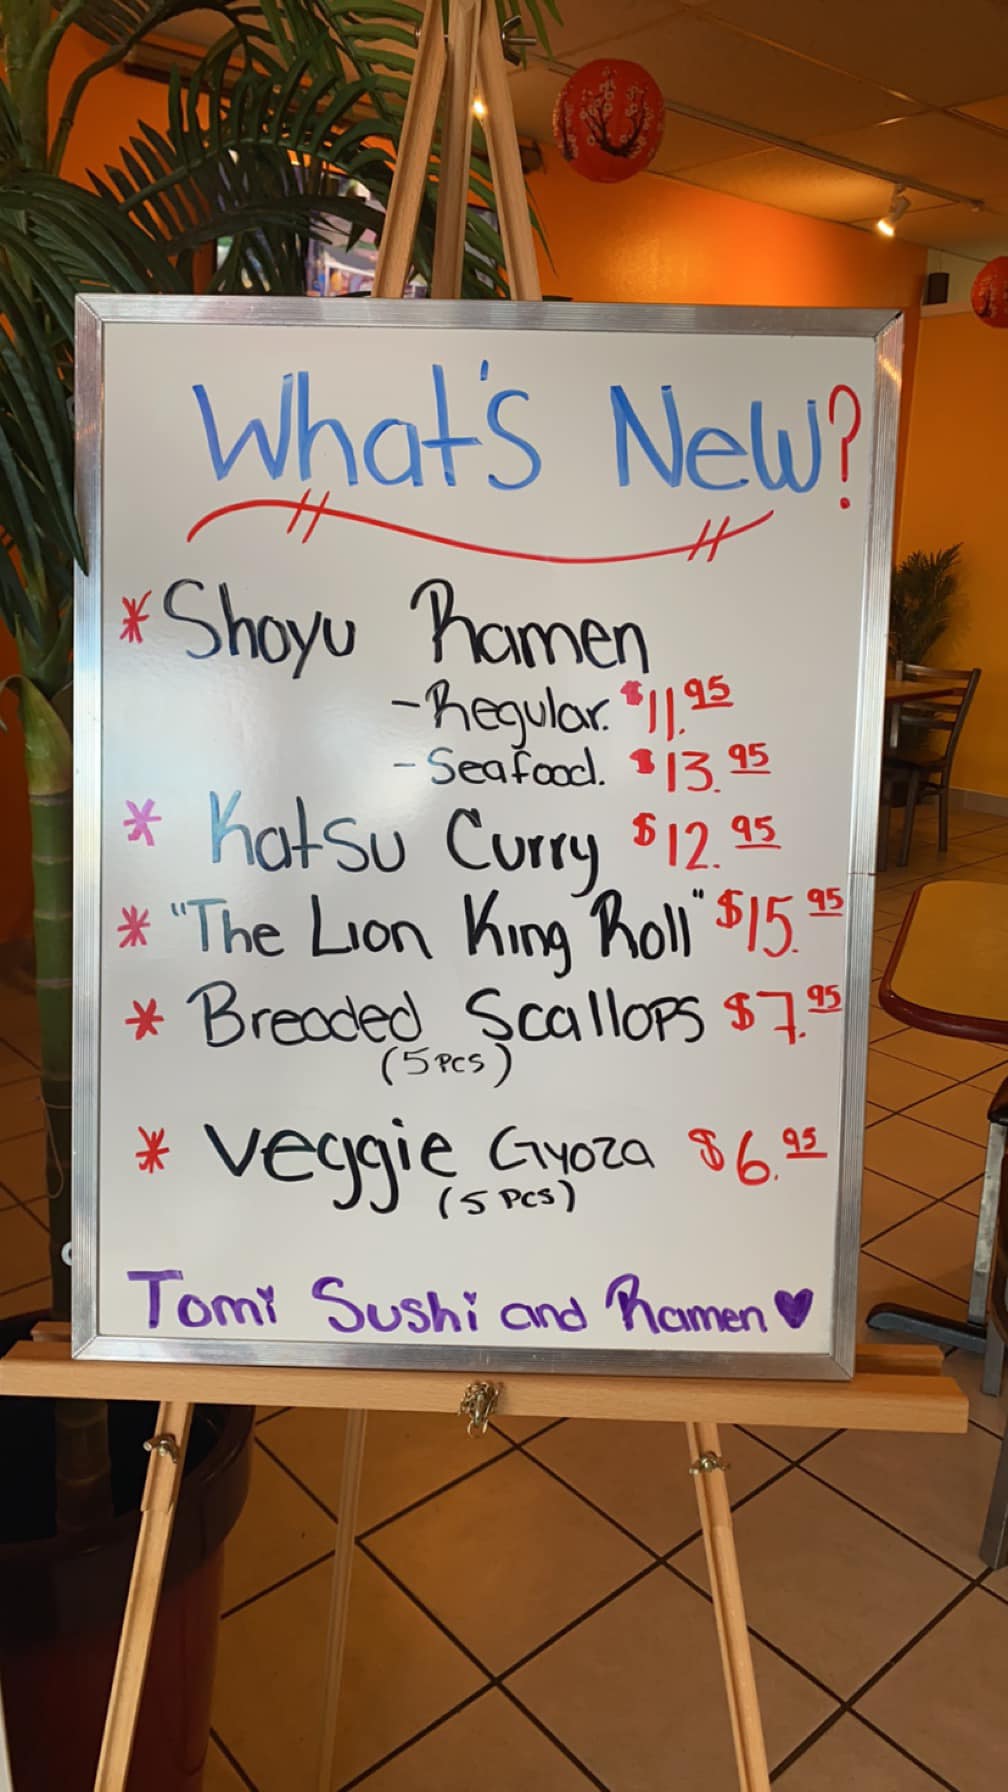 What's New?
* Shoyu Ramen
- Regular. $11.95
- Seafood. $13.95
* Katsu Curry $12.95
* "The Lion King Roll" $15.95
* Breaded Scallops $7.95
(5 pcs)
* Veggie Gyoza $6.95
(5 pcs)
Tomi Sushi and Ramen ♥